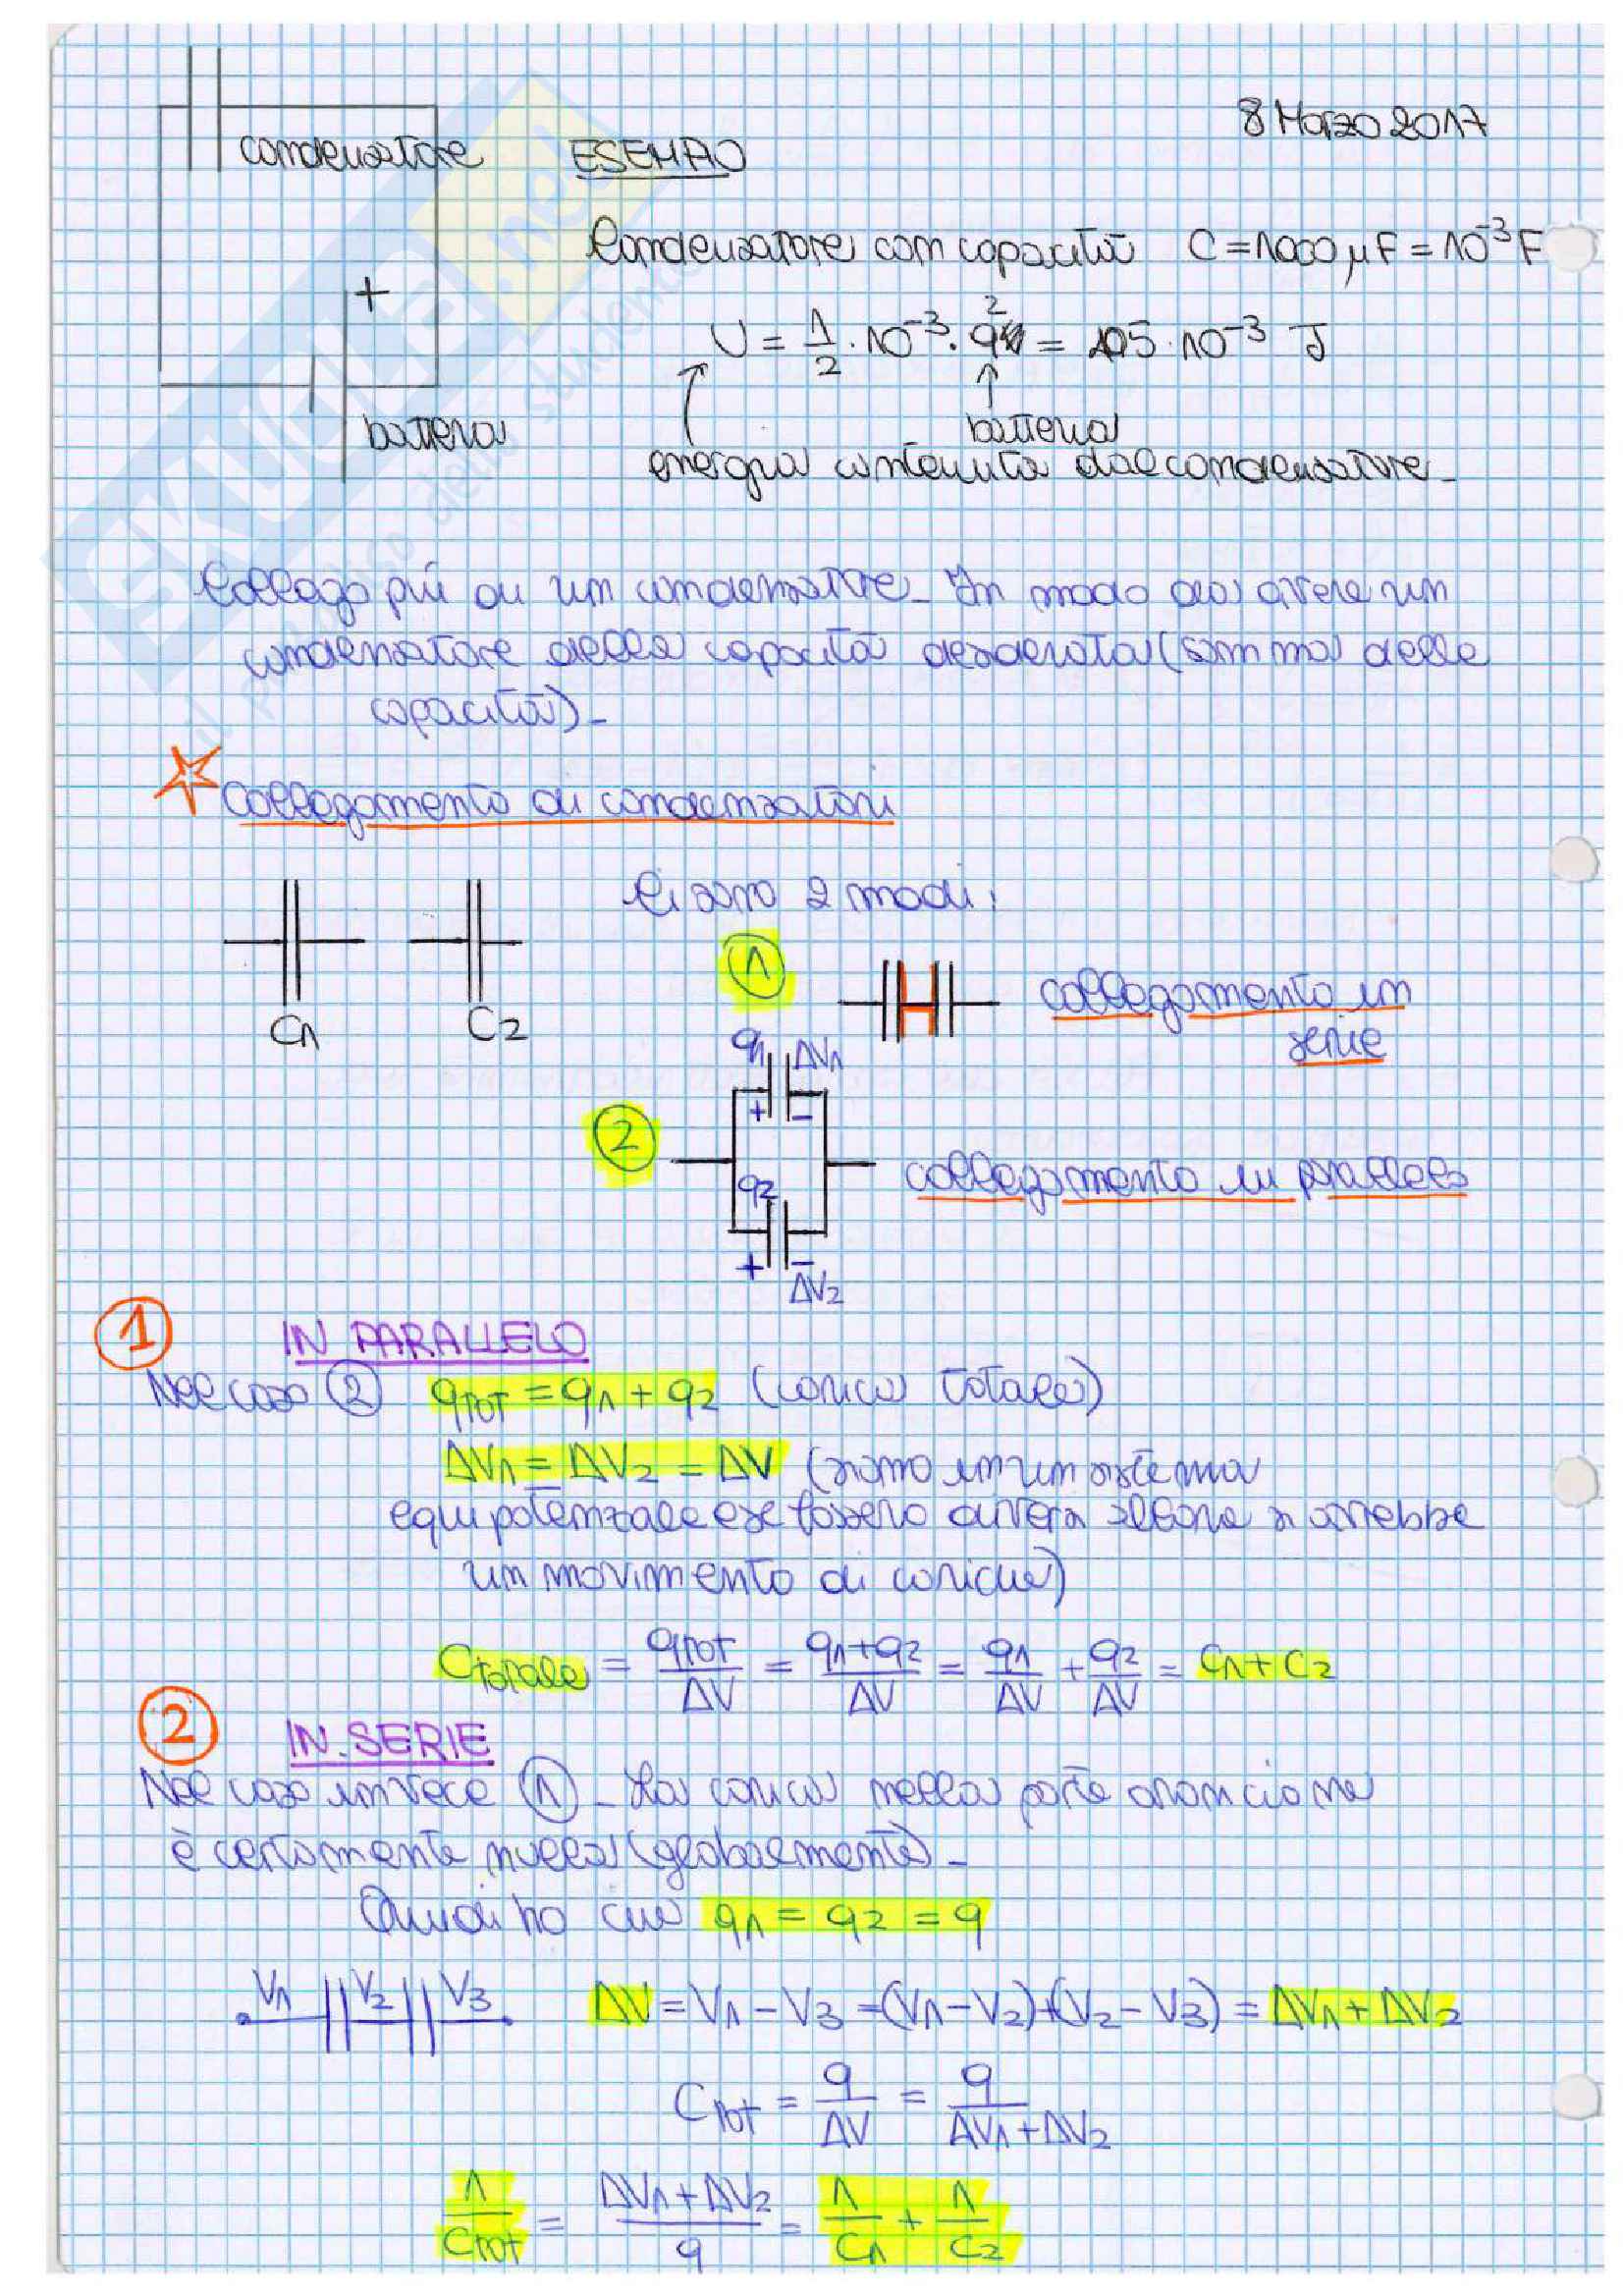 8 Marzo 2017
condensatore
ESEMPIO
Condensatore con capacità C = 1000 μF = 10⁻³ F
+
U = 1/2 · 10⁻³ · 9² = 405 · 10⁻³ J
batteria
batteria
energia contenuta dal condensatore
SKUOLA.net
il paradiso dello studente
Collego più di un condensatore. In modo da avere un
condensatore della capacità desiderata (somma delle
capacità).
Collegamento di condensatori
Ci sono 2 modi:
C1 C2
1
collegamento in
serie
q1 ΔV1
+ -
2
collegamento in parallelo
q2
+ -
ΔV2
1 IN PARALLELO
Nel caso 2 qTOT = q1 + q2 (carica totale)
ΔV1 = ΔV2 = ΔV (siamo in un sistema
equipotenziale e se fossero diversi allora si avrebbe
un movimento di cariche)
Ctotale = qTOT/ΔV = q1+q2/ΔV = q1/ΔV + q2/ΔV = C1 + C2
2 IN SERIE
Nel caso invece 1 - La carica nella parte arancione
è certamente nulla (globalmente) -
Quindi ho che q1 = q2 = q
V1 V2 V3
ΔV = V1 - V3 = (V1 - V2) + (V2 - V3) = ΔV1 + ΔV2
CTOT = q/ΔV = q/ΔV1 + ΔV2
1/CTOT = ΔV1 + ΔV2/q = 1/C1 + 1/C2